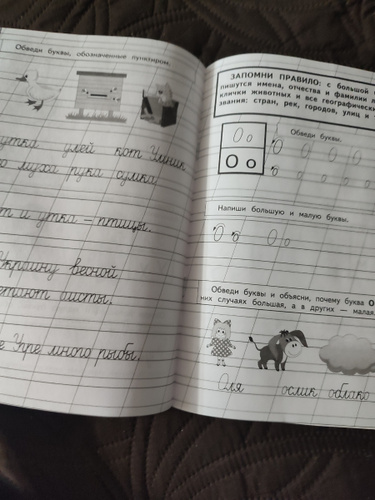 Обведи буквы, обозначенные пунктиром.
утка улей кот Умник
муха рука сумка
и утка – птицы.
Украину весной
аисты.
Уфе много рыбы.
ЗАПОМНИ ПРАВИЛО: с большой
пишутся имена, отчества и фамилии
клички животных и все географически
звания: стран, рек, городов, улиц и
О о
О о
Обведи буквы.
О О О О
о о о о о
Напиши большую и малую буквы.
О о О о
Обведи буквы и объясни, почему буква О
них случаях большая, а в других – малая
Оля ослик облако